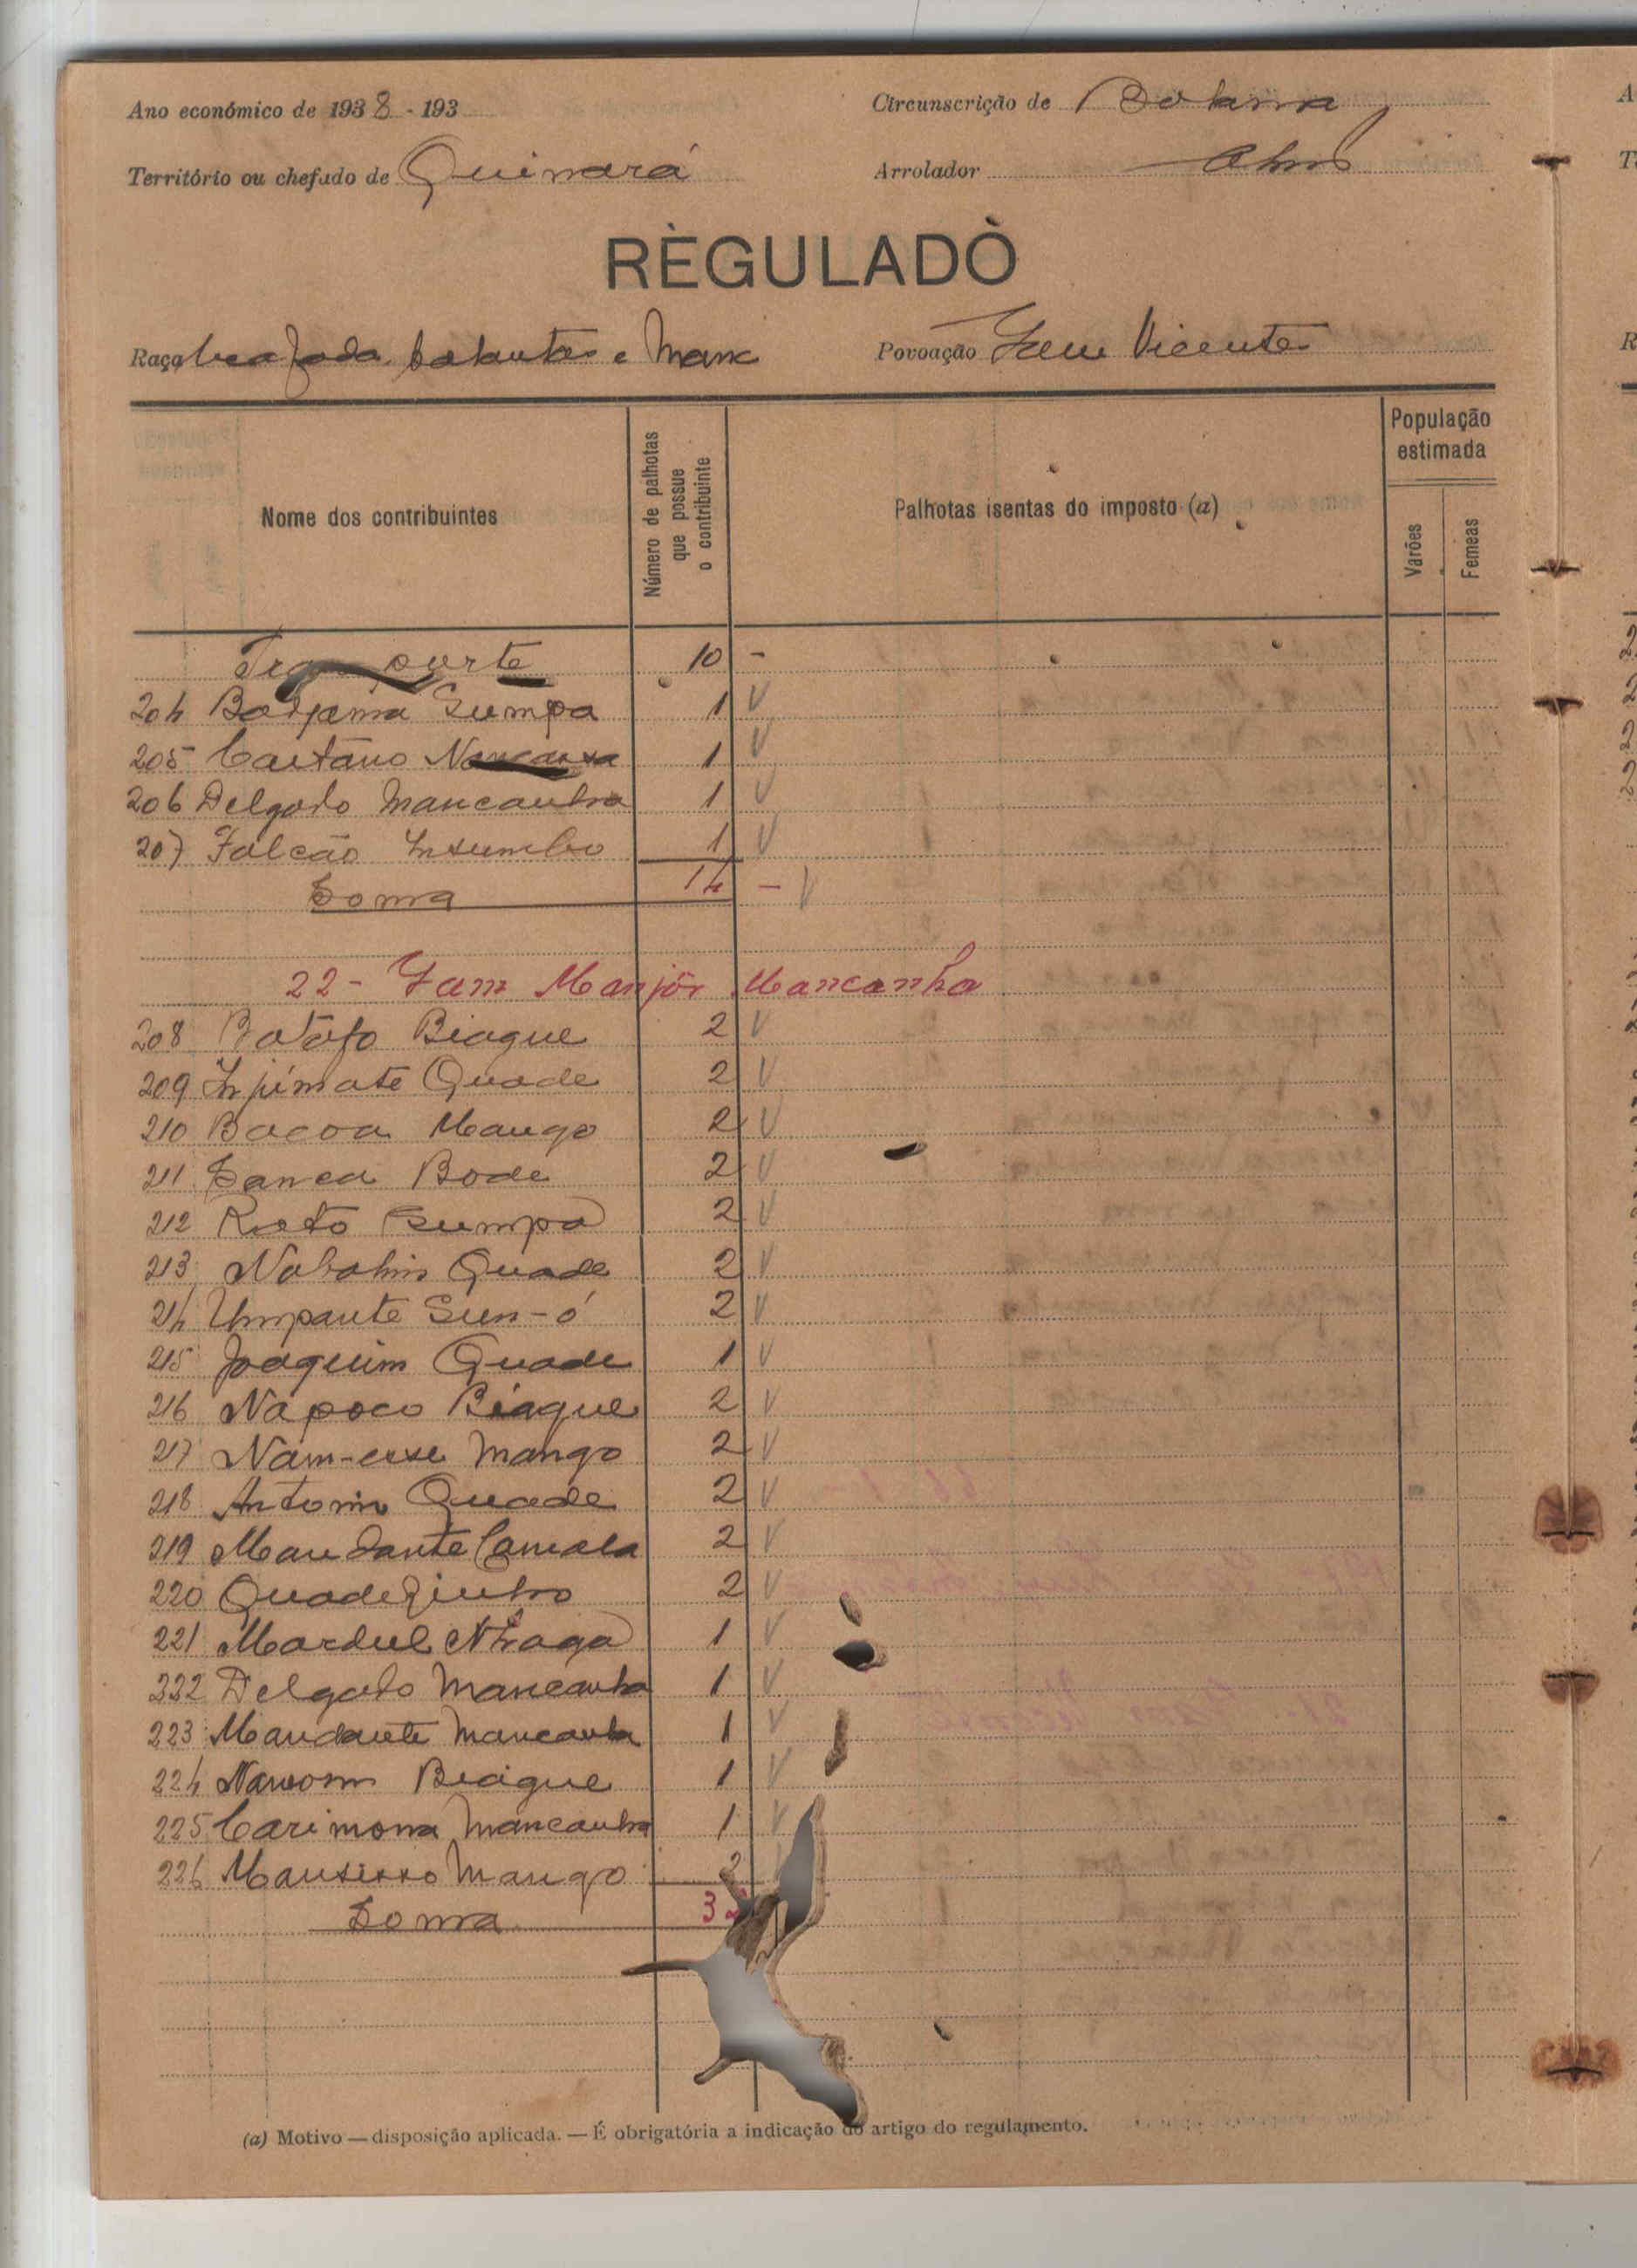 Ano económico de 1938 - 193
Circunscrição de Bolama
Território ou chefado de Quinará
Arrolador
RÈGULADÒ
Raça beafada balantas e Manc
Povoação Gam Vicente
Nome dos contribuintes
Número de palhotas que possue o contribuinte
Palhotas isentas do imposto (a)
População estimada
Varões
Femeas
Transporte 10 -
204 Sumpa 1 V
205 Caetano 1 V
206 Delgado Mancanha 1 V
207 Falcão Insumbo 1 V
Soma 14 - V
22 - Gam Manjór Mancanha
208 Batáfo Biague 2 V
209 Inpimate Quade 2 V
210 Bacoa Mango 2 V
211 Sanca Bode 2 V
212 Sumpa 2 V
213 Quade 2 V
214 Umpante Sun-ó 2 V
215 Joaquim Quade 1 V
216 Napoco Biague 2 V
217 Mango 2 V
218 Antonio Quade 2 V
219 Mandante Camala 2 V
220 Quadezinho 2 V
221 1 V
222 Delgado Mancanha 1 V
223 Mandante Mancanha 1 V
224 Biague 1 V
225 Carimona Mancanha 1 V
226 Mango 2
Soma 3
(a) Motivo — disposição aplicada. — É obrigatória a indicação do artigo do regulamento.